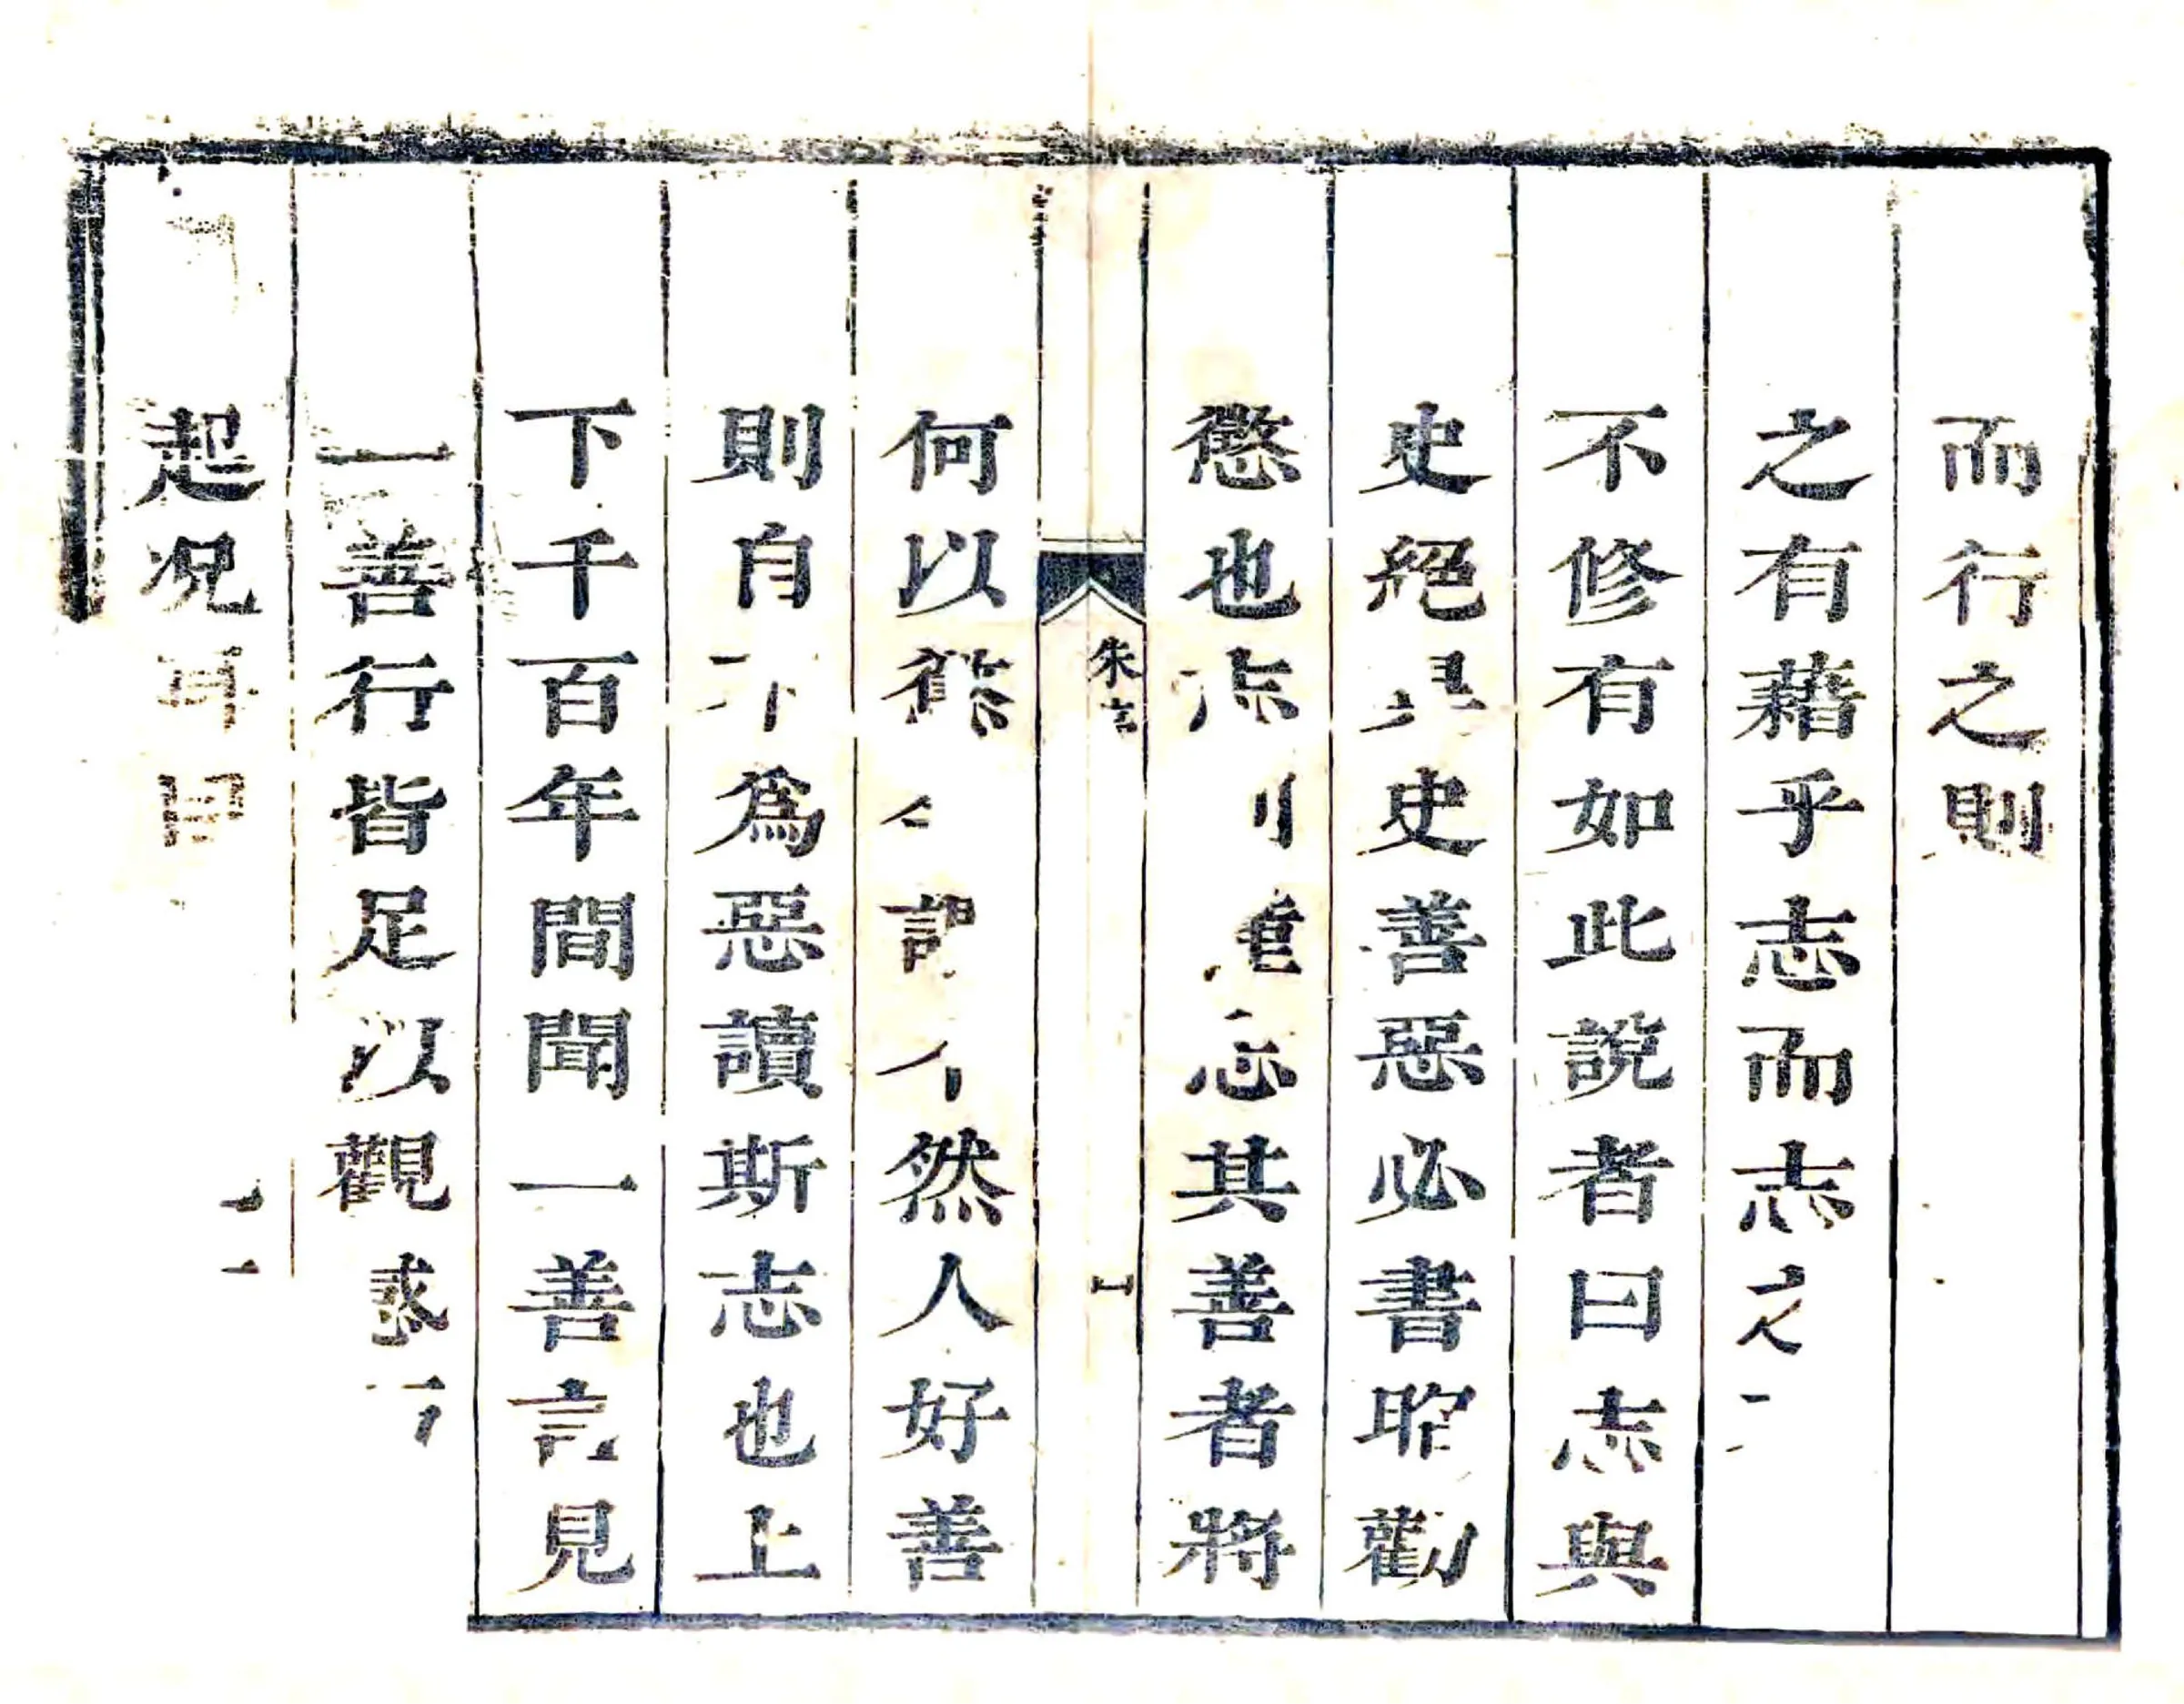 而行之則
之有藉乎志而志之
不修有如此說者曰志與
史絕異史善惡必書昭勸
懲也志則隱惡其善者將
何以然人好善
則自不為惡讀斯志也上
下千百年間聞一善言見
一善行皆足以觀感
起况耳目
朱